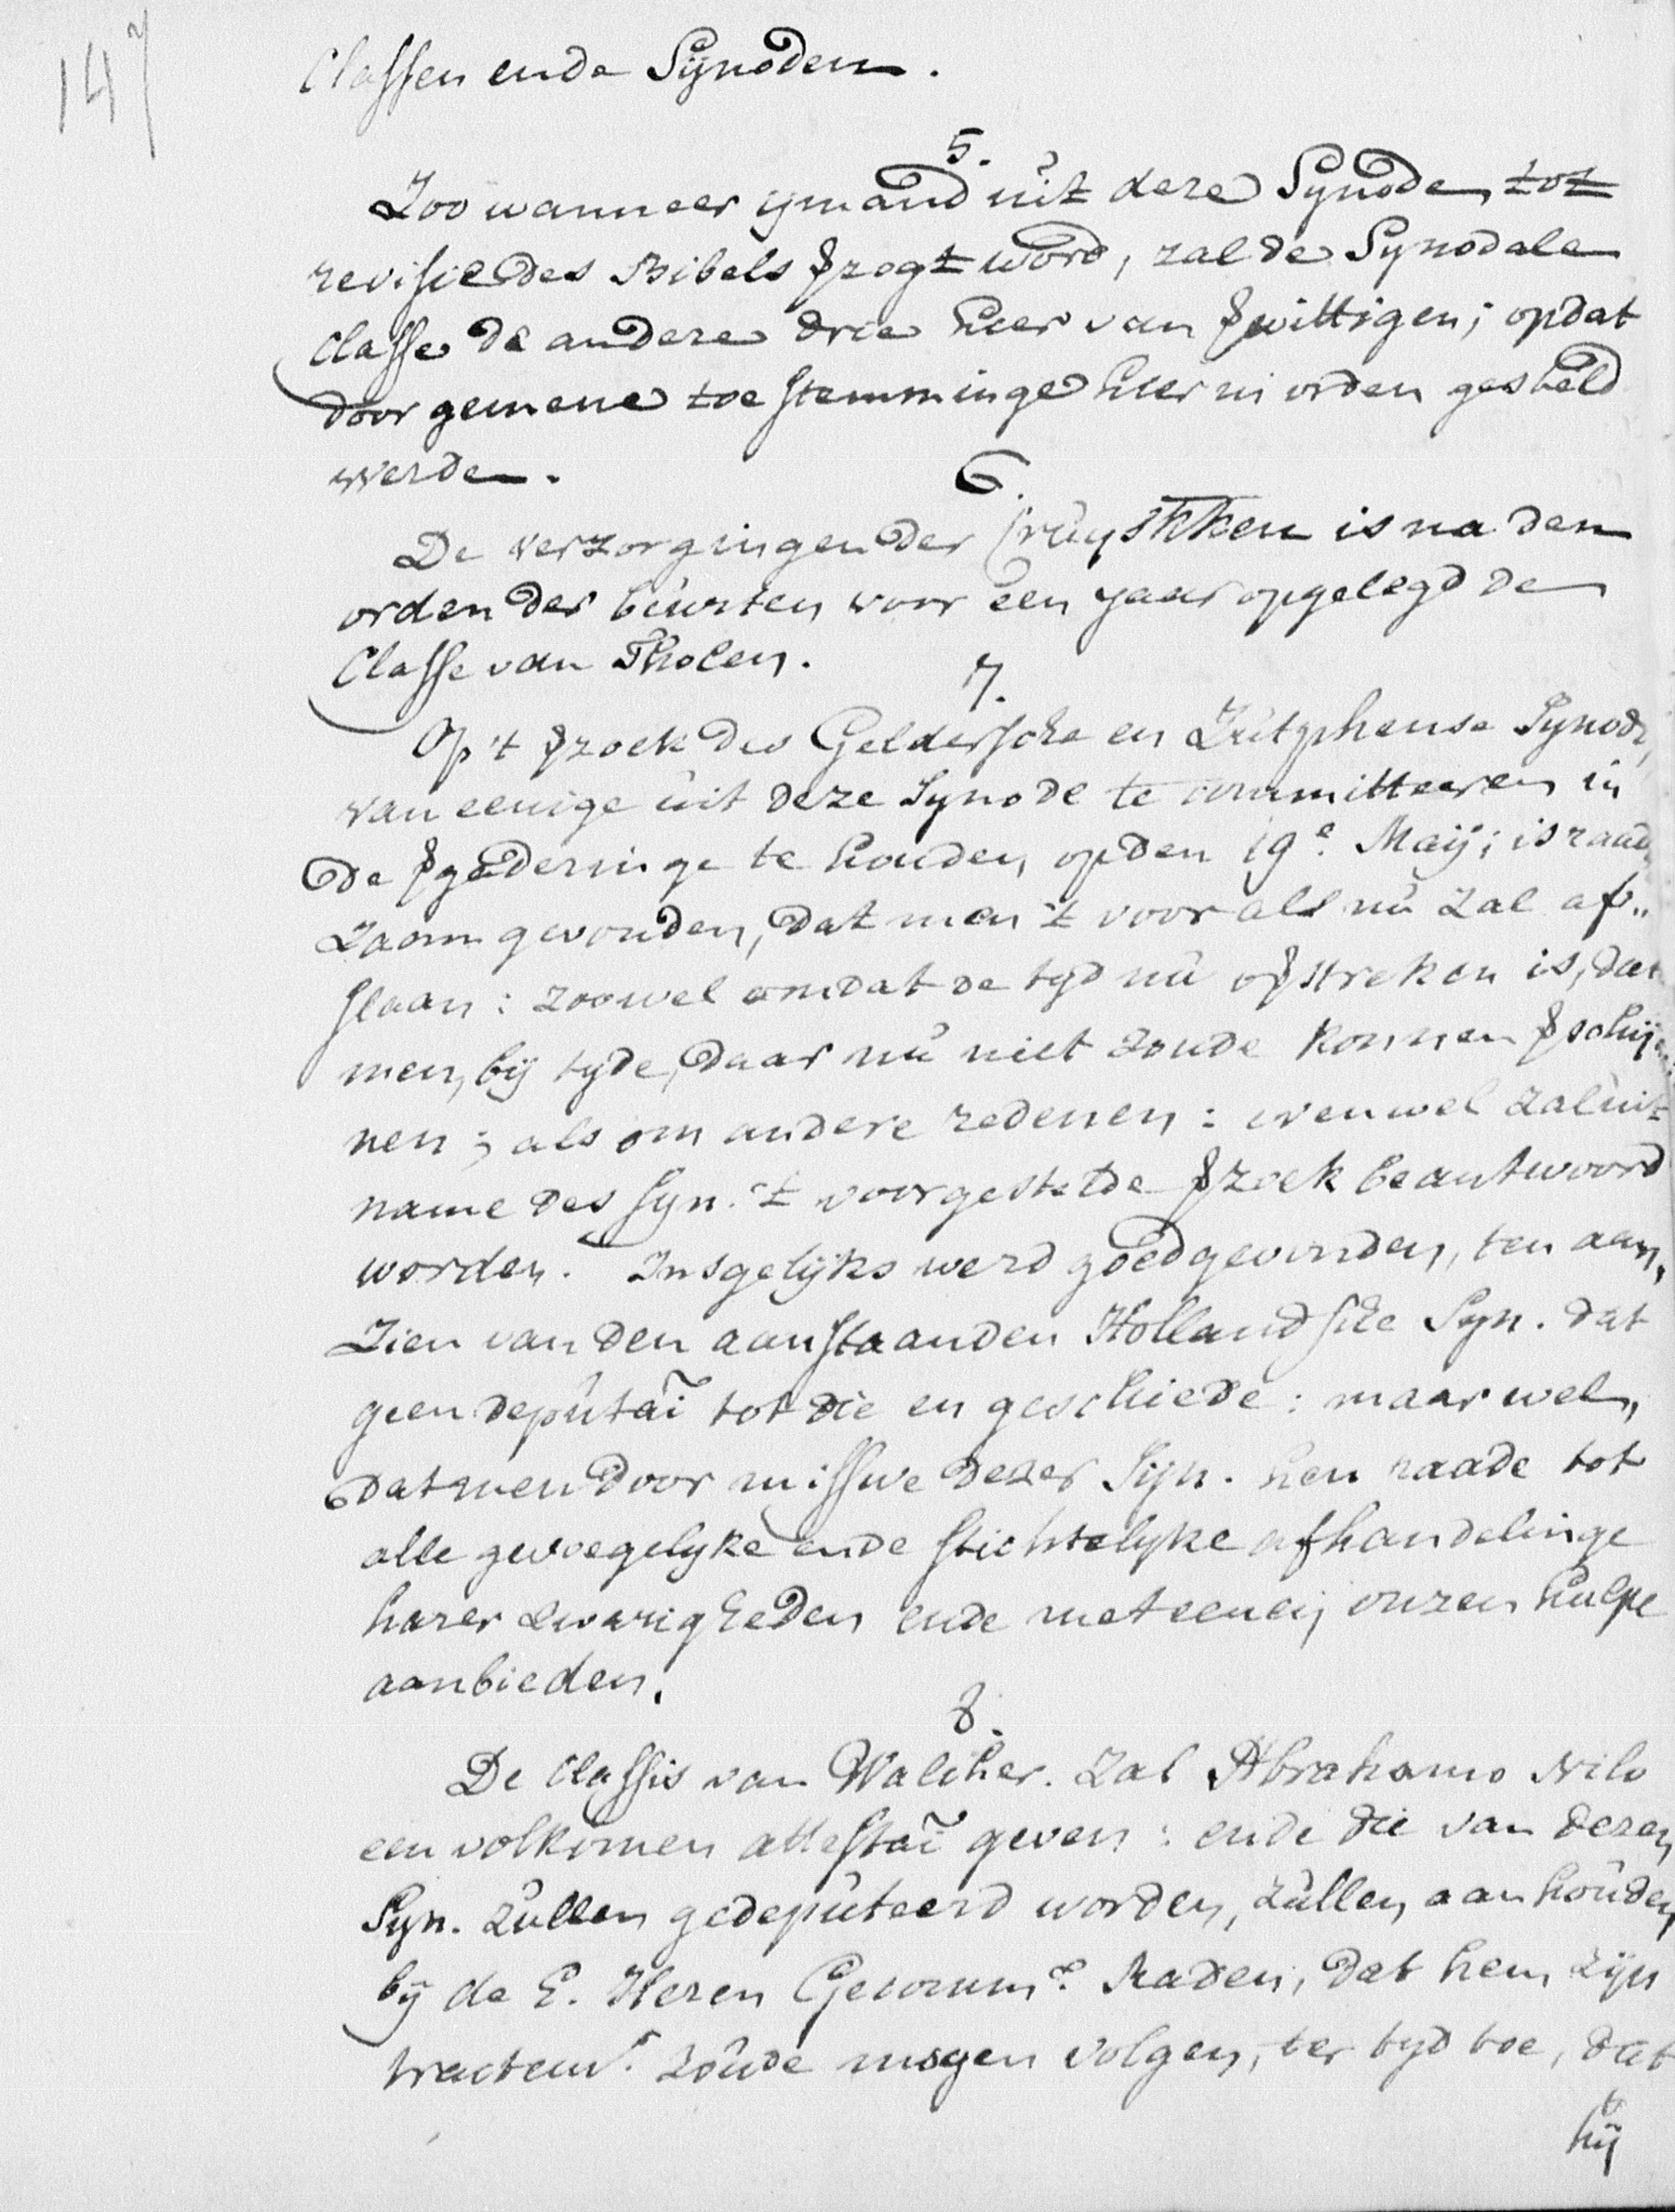 147
Classen ende Synoden.
5.
Zoo wanneer ymand uit deze Synode, tot
revisie des Bibels ꝟzogt word, zal de Synodale
Classe de andere drie hier van ꝟwittigen; opdat
door gemene toestemminge hier in orden gesteld
werde.
6.
De verzorgingen der is na den
orden der beurten voor een jaar opgelegd de
Classe van Tholen.
7.
Op 't ꝟzoek des Geldersche en Zutphense Synode,
van eenige uit deze Synode te committeeren in
de ꝟgaderinge te houden op den 19e Maij; is raad
zaam gevonden, dat men 't voor als nu zal af„
slaan: zoowel omdat de tyd nu ꝟstreken is, dat
men, bij tyde, daar nu niet zoude konnen ꝟschij„
nen; als om andere redenen: evenwel zal uit
name des Syn. 't voorgestelde ꝟzoek beantwoord
worden. Insgelijks werd goedgevonden, ten aan„
zien van den aanstaanden Hollandsche Syn. dat
geen deputaĩ tot die en geschiede: maar wel,
dat men door missive dezer Syn. hen raade tot
alle gevoegelyke ende stichtelyke afhandelinge
harer zwarigheden ende met eenen onzen hulpe
aanbieden.
8.
De Classis van Walcher. zal Abrahamo Nilo
een volkomen attestaĩ geven: ende die van dezen
Syn. zullen gedeputeerd worden, zullen aanhouden
bij de E. Heren Gecommde Raden, dat hem zijn
tractemt zoude mogen volgen, ter tyd toe, dat
hij